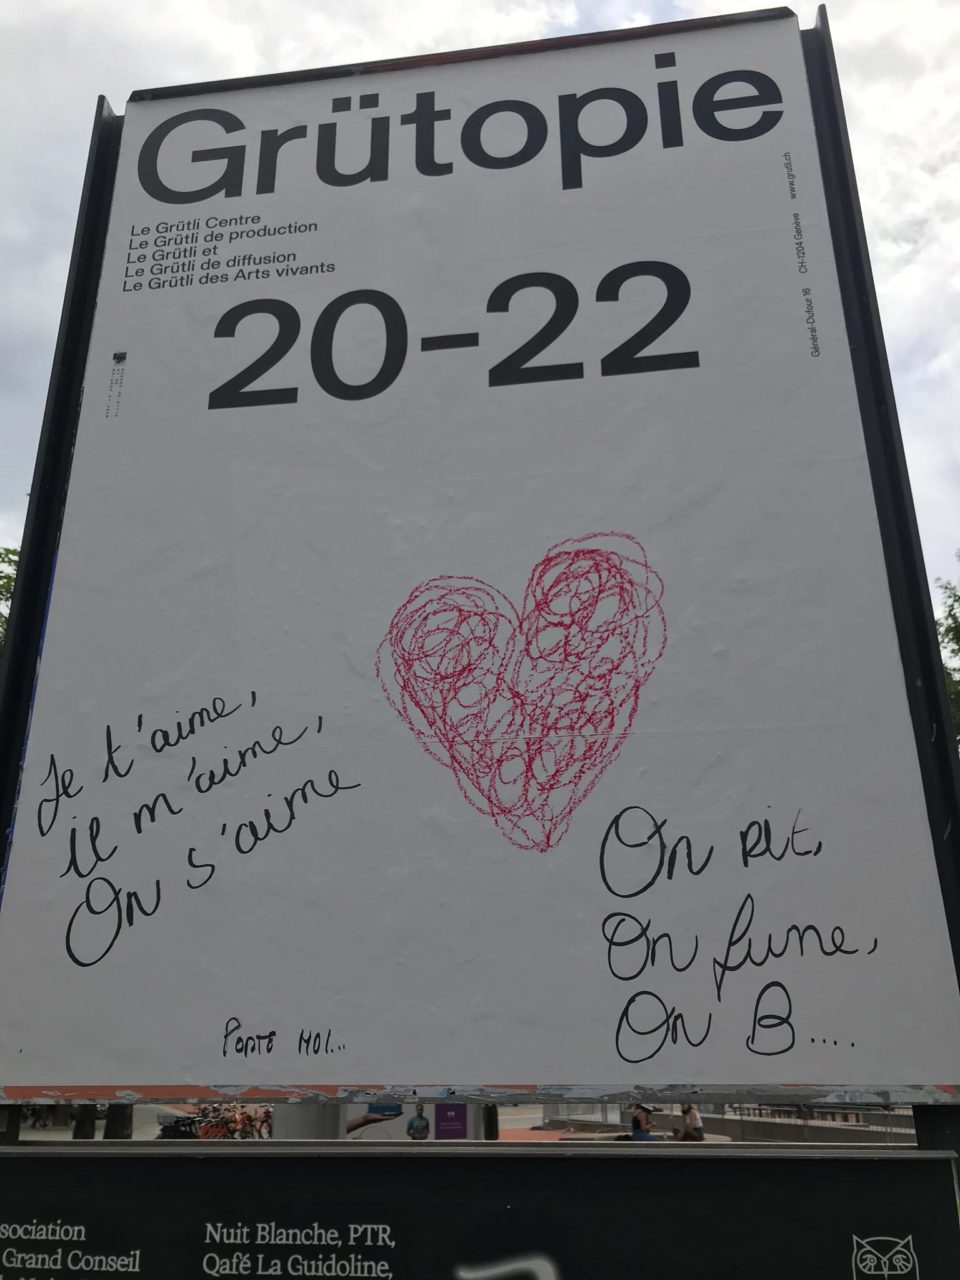 Grütopie
Le Grütli Centre
Le Grütli de production
Le Grütli et
Le Grütli de diffusion
Le Grütli des Arts vivants
20-22
Général-Dufour 16 CH-1204 Genève www.grutli.ch
Je t'aime,
il m'aime,
On s'aime
On rit,
On fume,
On B....
PORTE MOI...
sociation
Grand Conseil
Nuit Blanche, PTR,
Qafé La Guidoline,